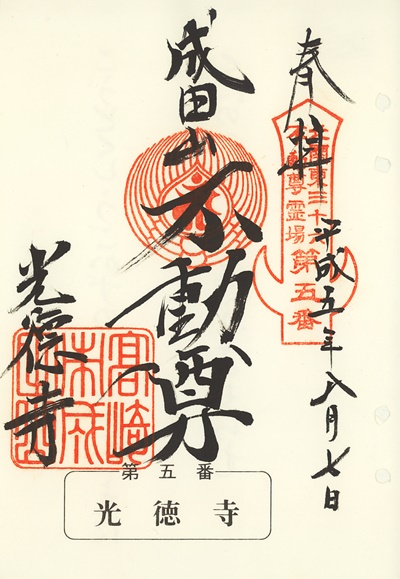 奉拝
平成五年八月七日
北関東三十六
不動尊霊場第五番
成田山
不動尊
光徳寺
第五番
光徳寺